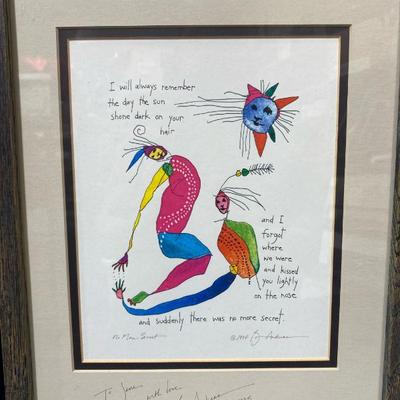 I will always remember
the day the sun
shone dark on your
hair
and I
forgot
where
we were
and kissed
you lightly
on the nose
and suddenly there was no more secret.
No More Secret
©1994 B. Andreas
To Jane
with love
Andreas